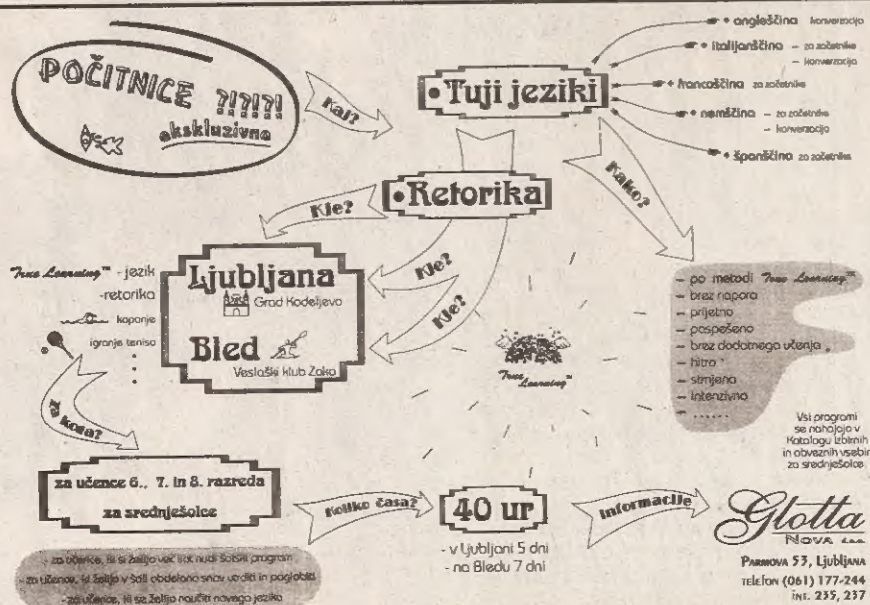 POČITNICE ?!?!?!
ekskluzivno
Kaj?
• Tuji jeziki
• angleščina konverzacija
• italijanščina - za začetnike
- konverzacija
• francoščina za začetnike
• nemščina - za začetnike
- konverzacija
• španščina za začetnike
• Retorika
Kje?
Kje?
Kje?
Kako?
Ljubljana
Grad Kodeljevo
Bled
Veslaški klub Zaka
True Learning™ - jezik
-retorika
kopanje
igranje tenisa
True Learning™
- po metodi True Learning™
- brez napora
- prijetno
- pospešeno
- brez dodatnega učenja
- hitro
- strnjeno
- intenzivno
- ......
Vsi programi
se nahajajo v
Katalogu izbirnih
in obveznih vsebin
za srednješolce
za koga?
za učence 6., 7. in 8. razreda
za srednješolce
- za učence, ki si želijo več kot nudi šolski program
- za učence, ki želijo v šoli obdelano snov utrditi in poglobiti
- za učence, ki se želijo naučiti novega jezika
Koliko časa?
40 ur
- v Ljubljani 5 dni
- na Bledu 7 dni
Informacije
Glotta
NOVA d.o.o.
PARMOVA 53, LJUBLJANA
TELEFON (061) 177-244
INT. 235, 237